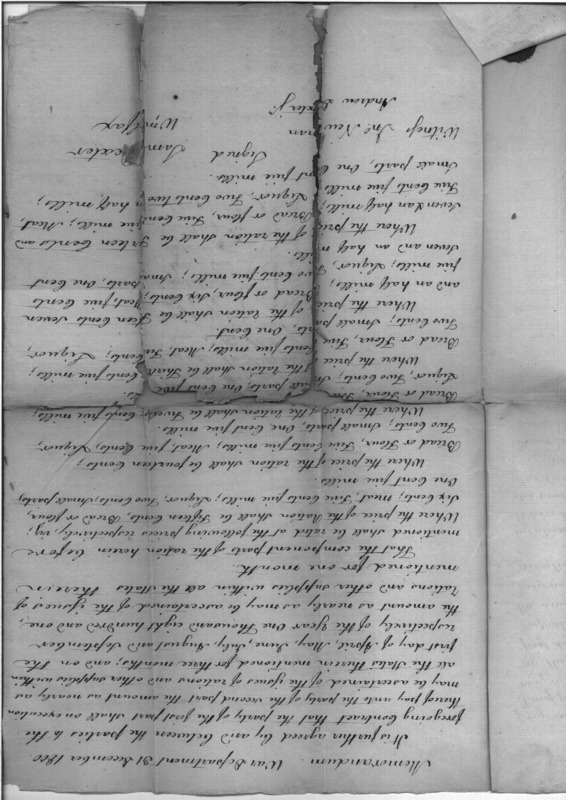 Memorandum. War Department 31 December 1800
It is further agreed by and between the parties to the
foregoing Contract that the party of the first part shall on execution
thereof pay unto the party of the second part the amount as nearly as
may be ascertained of the issues of rations and other supplies within
all the States therein mentioned for three months, and on the
first day of April, May, June, July, and August, and September
respectively of the year One Thousand eight hundred and one,
the amount as nearly as may be ascertained of the issues of
rations and other supplies within all the States therein
mentioned for one month.
That the component parts of the ration herein before
mentioned shall be rated at the following prices respectively, viz;
Where the price of the ration shall be Fifteen Cents, Bread or flour,
Six Cents; Meat, Five Cents five mills; Liquor, Two Cents; Small parts,
One Cent five mills.
Where the price of the ration shall be fourteen Cents;
Bread or Flour, Five Cents five mills; Meat, five Cents; Liquor,
Two Cents; Small parts, One Cent five Cents.
Where the price of the ration shall be Twelve Cents five mills;
Bread or Flour, Cent five mills.
Liquor, Two Cents; Small parts, One Cent five mills;
Where the price of the ration shall be Cents; Liquor,
Bread or Flour, Five Cents five mills; Meat,
Two Cents; Small parts, One Cent
Where the price of the ration shall be Cents Seven
and an half mills; Bread or flour, Six Cents; Meat, five Cents
five mills; Liquor, Two Cents five mills; Small parts, One Cent
Seven and an half mills.
Where the price of the ration shall be Cents and
Seven & an half mills; Bread or flour, Five Cents five mills; Meat,
Five Cents five mills; Liquor, Two Cents two an half mills;
Small parts, One Cent five mills.
Signed Sam Dexter
Witness Jno. Newman Wm Colfax
Andrew Dexter Jr